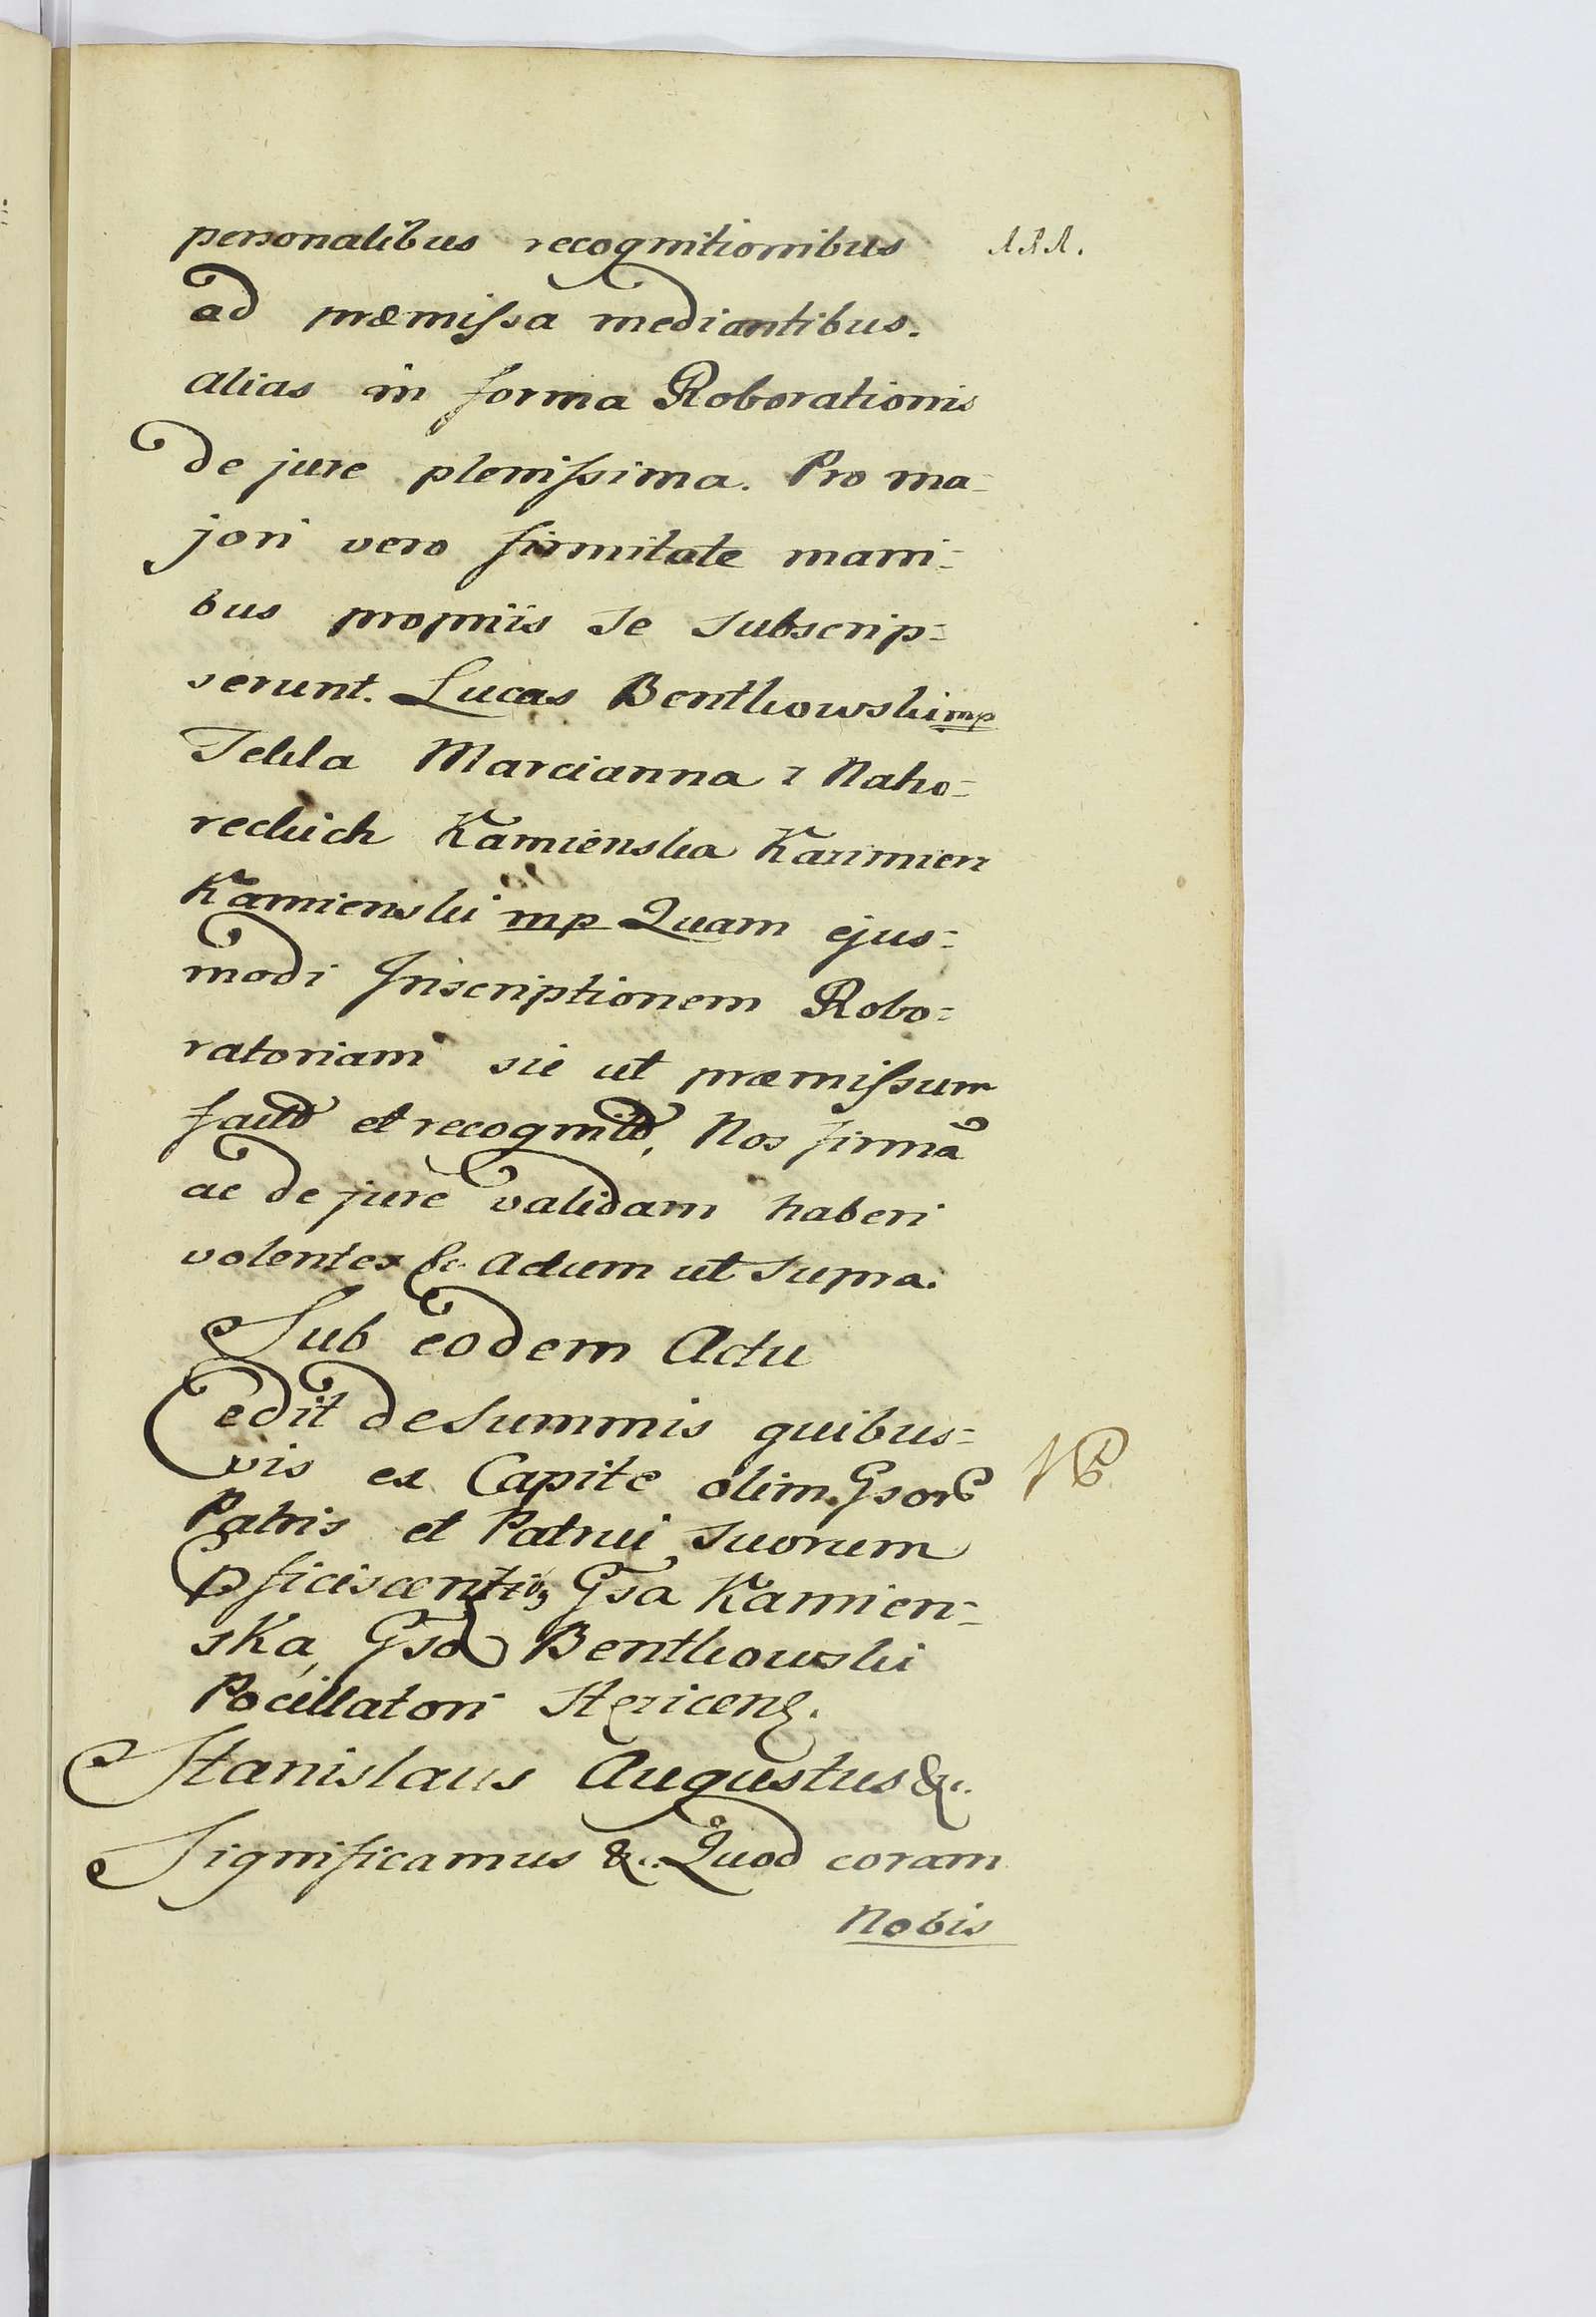 personalibus recognitionibus 111.
ad præmissa mediantibus.
alias in forma Roborationis
de jure plenissima. Pro ma=
jori vero firmitate mani=
bus propriis se subscrip=
serunt. Lucas Bentkowski mp
Tekla Marcianna z Naho=
reckich Kamienska Kazimierz
Kamienski mp Quam ejus=
modi Inscriptionem Robo=
ratoriam sic ut præmissum
et Nos firmã
ac de jure validam haberi
volentes &c Actum ut supra.
Sub eodem Actu
Cedit de summis quibus=
vis ex Capite olim Gsor
Patris et Patrui suorum
pficiscentib9 Gsa Kamien=
ska, Gso Bentkowski
Pocillatori
Stanislaus Augustus &c.
Significamus &c. Quod coram
Nobis